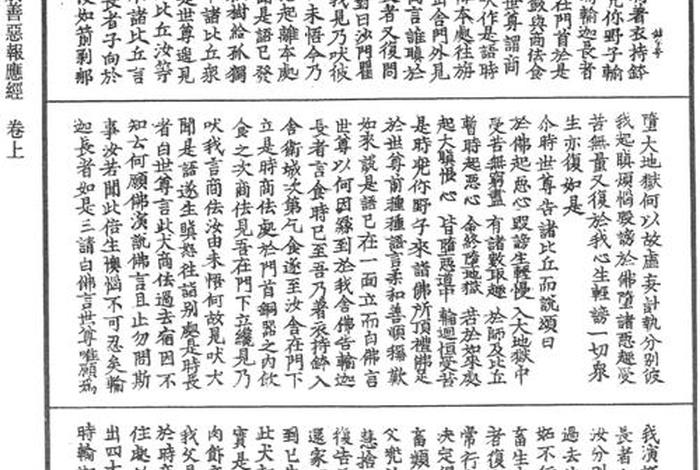 著衣持鉢
兜你野子輸
輸迦長者
在門首於是
與商佉食
世尊謂商
吠作是語時
本處往旃
出舍門外見
言誰瞋於
者又復問
對曰沙門瞿
見乃吠彼
未悟今乃
起離本處
是語已發
樹給孤獨
諸比丘眾
是世尊遙見
比丘汝等
諸比丘言
長者子向於
如箭剎那
墮大地獄何以故虛妄計執分別彼
我起瞋煩惱毀謗於佛墮諸惡趣受
苦無量又復於我心生輕謗一切眾
生亦復如是
尒時世尊告諸比丘而說頌曰
於佛起惡心 毀謗生輕慢 入大地獄中
受苦無窮盡 有諸數取趣 於師及比丘
暫時起惡心 命終墮地獄 若於如來處
起大瞋恨心 皆墮惡道中 輪迴恒受苦
是時兜你野子來詣佛所頂禮佛足
於世尊前種種語言柔和善順稱歎
如來說是語已在一面立而白佛言
世尊以何因緣到於我舍佛告輸迦
長者言食時已至吾乃著衣持鉢入
舍衛城次第乞食遂至汝舍在門下
立是時商佉處於門首銅器之內飲
食之次商佉見吾在門下立纔見乃
吠我言商佉汝由未悟何故見吠犬
聞是語遂生瞋怒往詣別處是時長
者白世尊言此犬商佉過去宿因不
知云何願佛演說佛言且止勿問斯
事汝若聞此倍生懊惱不可忍矣輸
迦長者如是三請白佛言世尊唯願為
我演
長者
汝分
過去
妬不
畜生
者復
常行
決定
畜類
父兜
慈捨
復告
還家
到已
此犬
實是
肉餅
我父
於時
住處
出四
時輸
善惡報應經 卷上